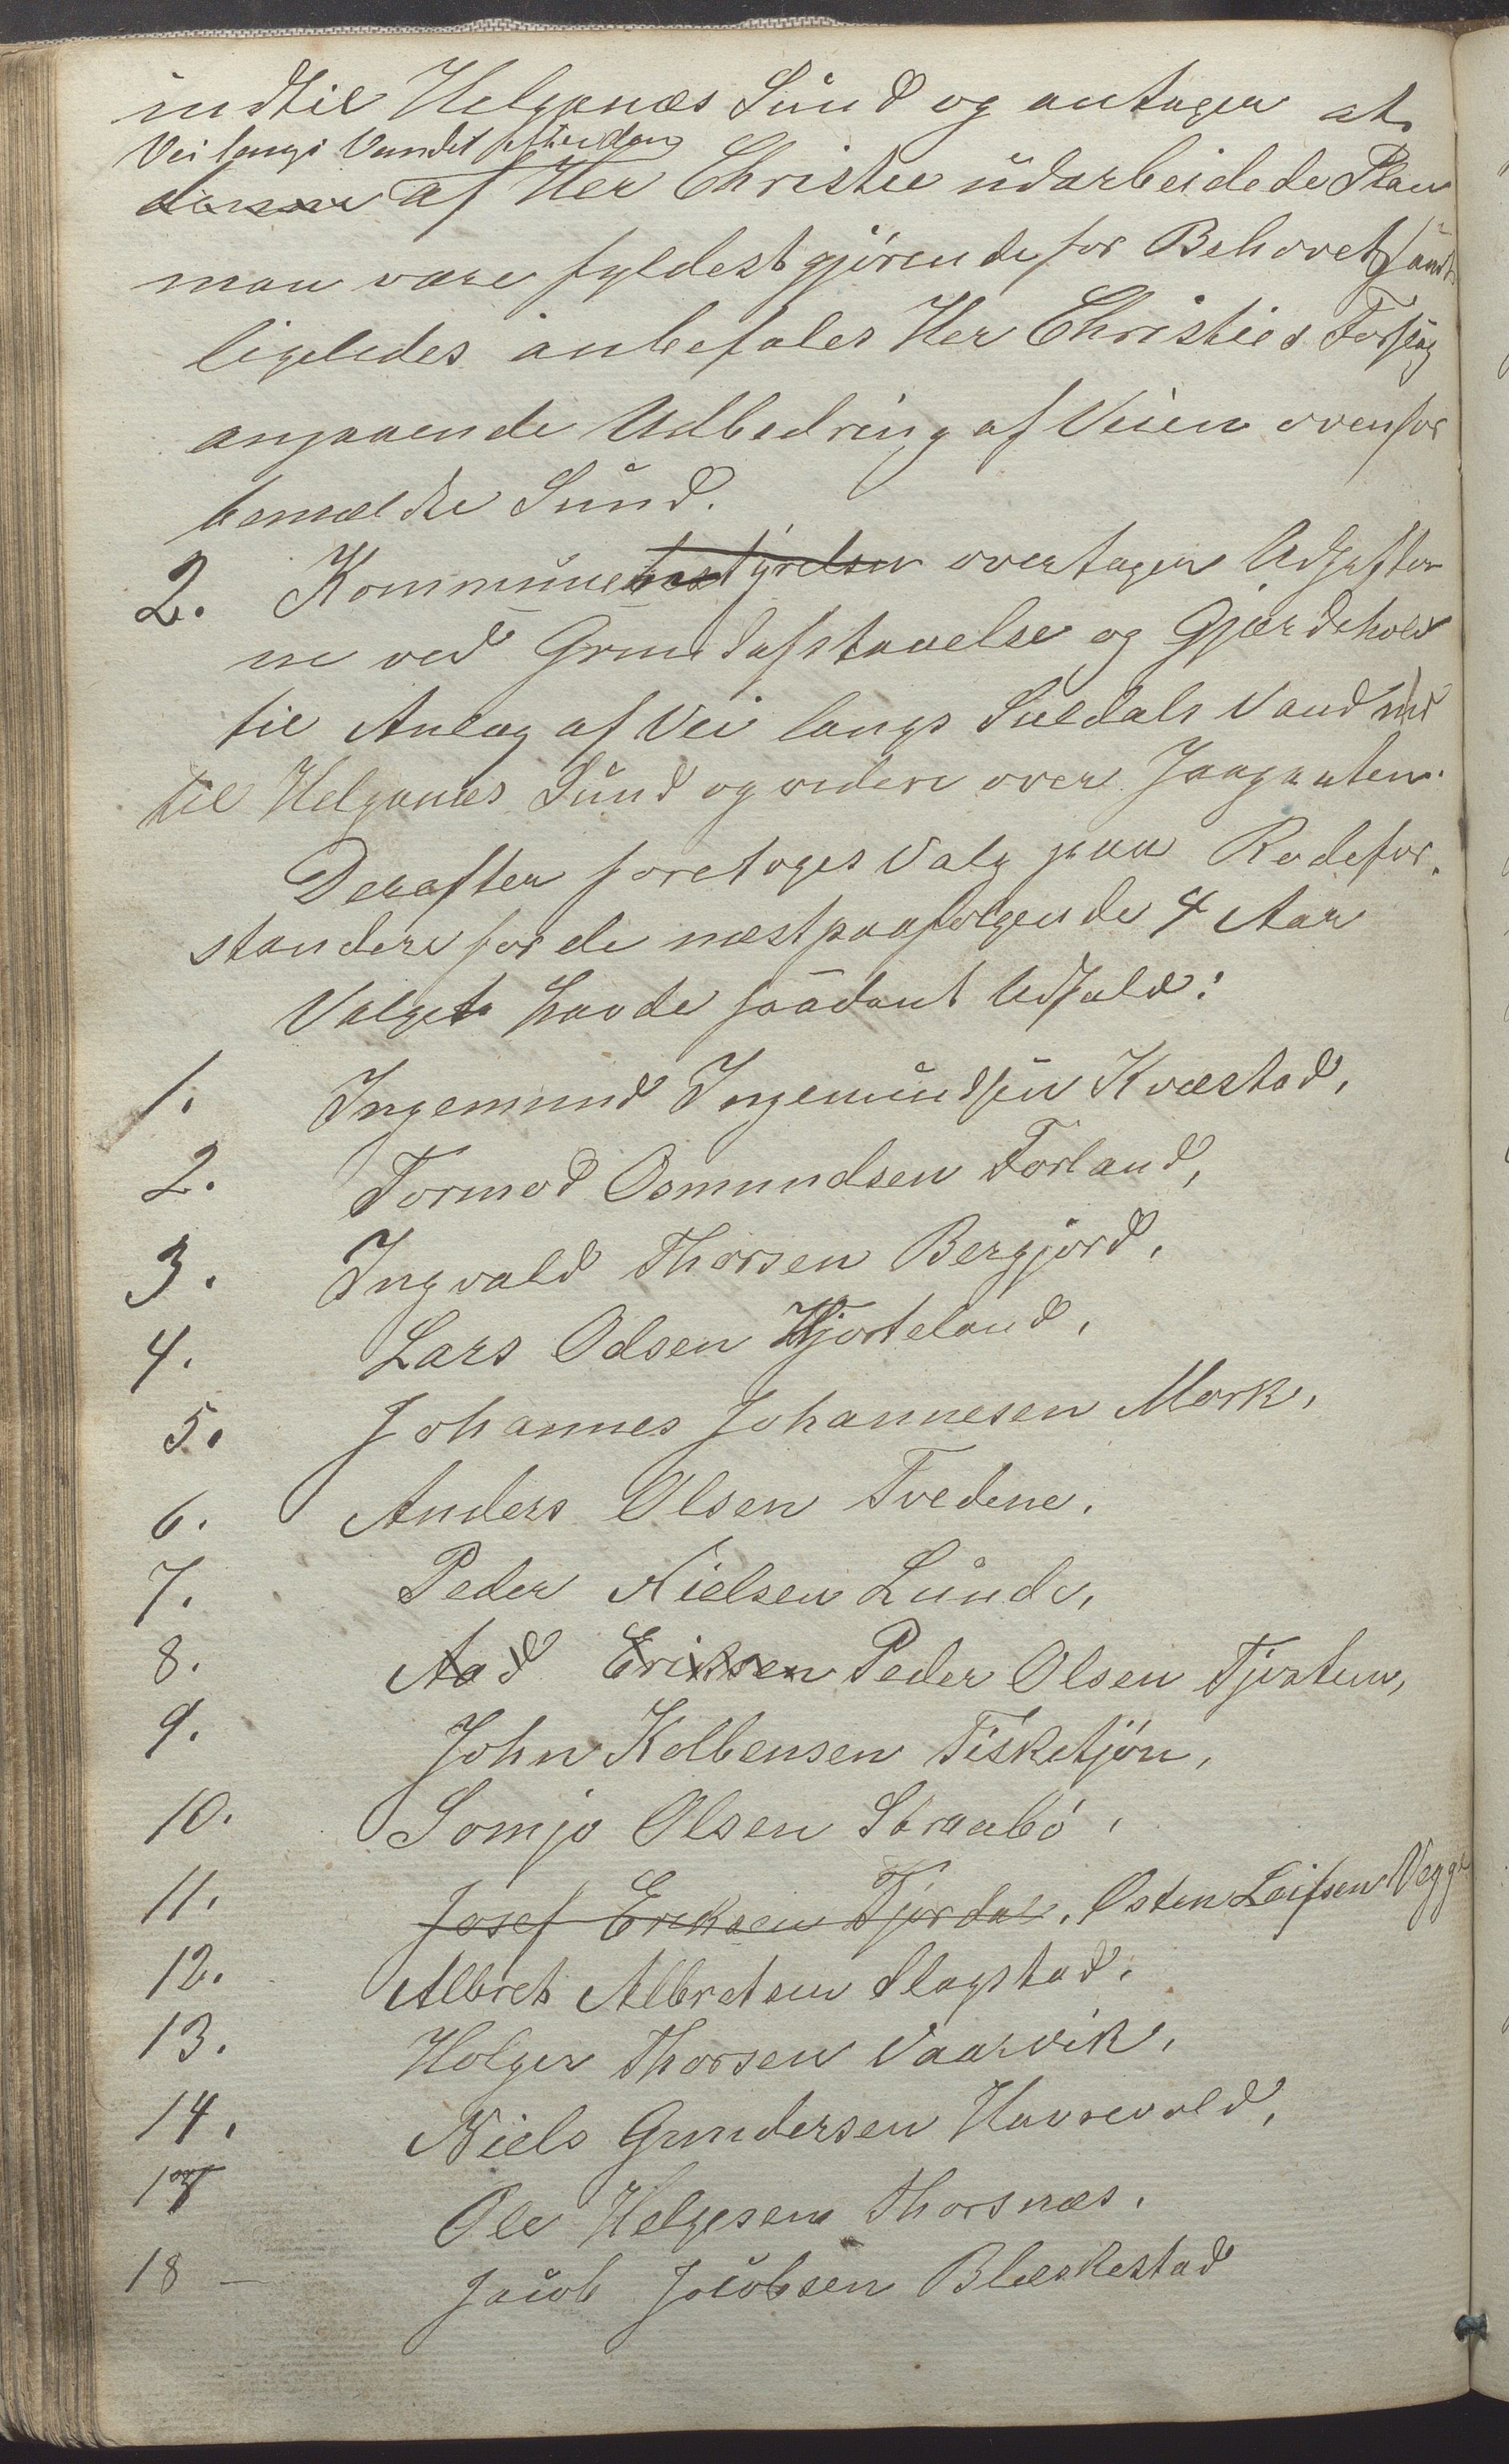 indtil Helganæs Sund og antager at
Vei langs Vandet efter den
denne af Her Christie udarbeidede Plan
maa være fyldestgjørende for Behovet, samt
ligeledes anbefales Her Christies Forslag
angaaende Udbedring af Veien ovenfor
bemeldte Sund.
2. Kommunebestyrelsen overtager Udgifter
ne ved Grundafstaaelse og Gjærdehold
til Anlæg af Vei langs Suldals Vand ind
til Helganæs Sund og videre over
Derefter foretoges Valg paa Rodefor-
standere for de næstpaafølgende 4 Aar
Valget havde saadant Udfald:
1. Ingemund Ingemundsen Kvæstad,
2. Tormod Osmundsen Førland,
3. Ingvald Thorsen Bergjord,
4. Lars Odsen Hjorteland,
5. Johannes Johannesen Mork,
6. Anders Olsen Tvedene,
7. Peder Nielsen Lunde,
8. Aad Eriksen Peder Olsen Tjostun,
9. John Kolbensen Fisketjøn,
10. Somjo Olsen Straabø,
11. Josef Eriksen Fjordal, Østen Leifsen Vegge
12. Albret Albretsen Slagstad,
13. Holger Thorsen Vaarvik,
14. Niels Gundersen Havrevold,
17 Ole Helgesen Thorsnæs,
18 — Jacob Jacobsen Bleskestad